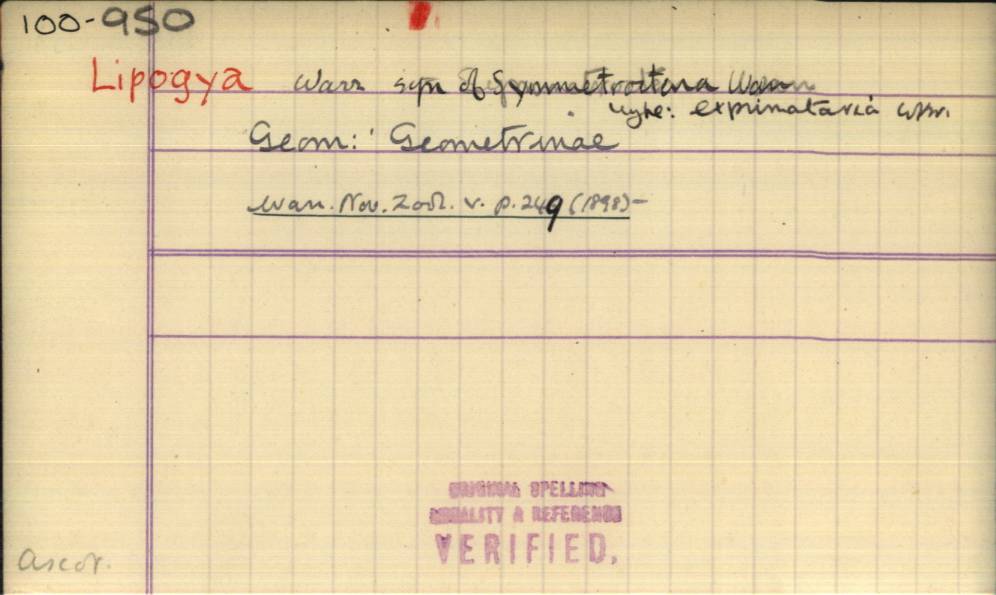 100-950
Lipogya Warr syn of Symmetroctena Warr
type: exprimataria Wkr.
Geom: Geometrinae
Warr. Nov. Zool. v. p. 249 (1898)-
ORIGINAL SPELLING
LOCALITY & REFERENCE
VERIFIED.